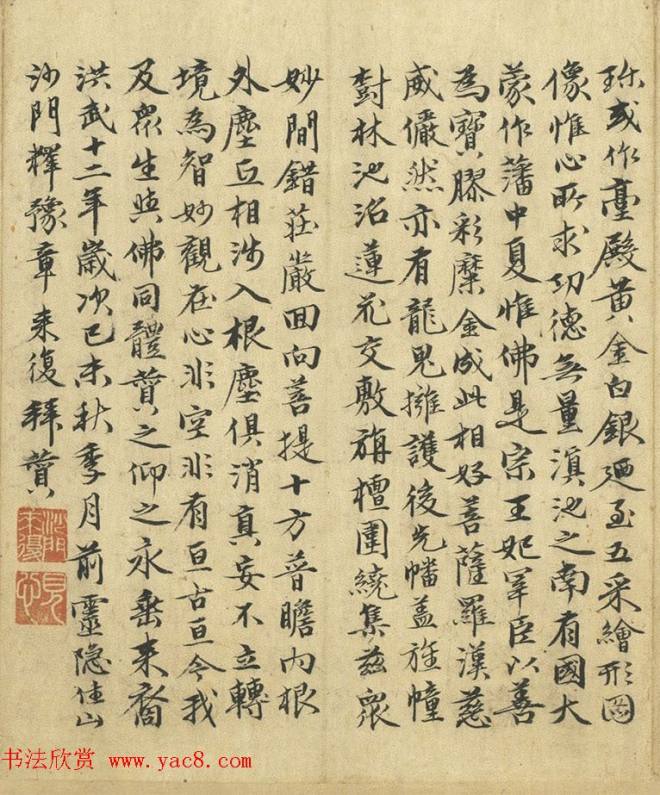 珎或作臺殿黃金白銀迺至五采繪形圖
像惟心所求功德無量滇池之南有國大
蒙作藩中夏惟佛是宗王妃宰臣以善
為寶膠彩糜金成此相好菩薩羅漢慈
威儼然亦有龍鬼擁護後先幡蓋旌幢
樹林池沼蓮花交敷旃檀圍繞集茲眾
妙間錯莊嚴回向菩提十方普瞻內根
外塵互相涉入根塵俱消真妄不立轉
境為智妙觀在心非空非有亘古亘今我
及眾生與佛同體贊之仰之永垂来裔
洪武十二年歲次己未秋季月前靈隱住山
沙門釋豫章来復拜贊
沙門来復
見心
书法欣赏 www.yac8.com